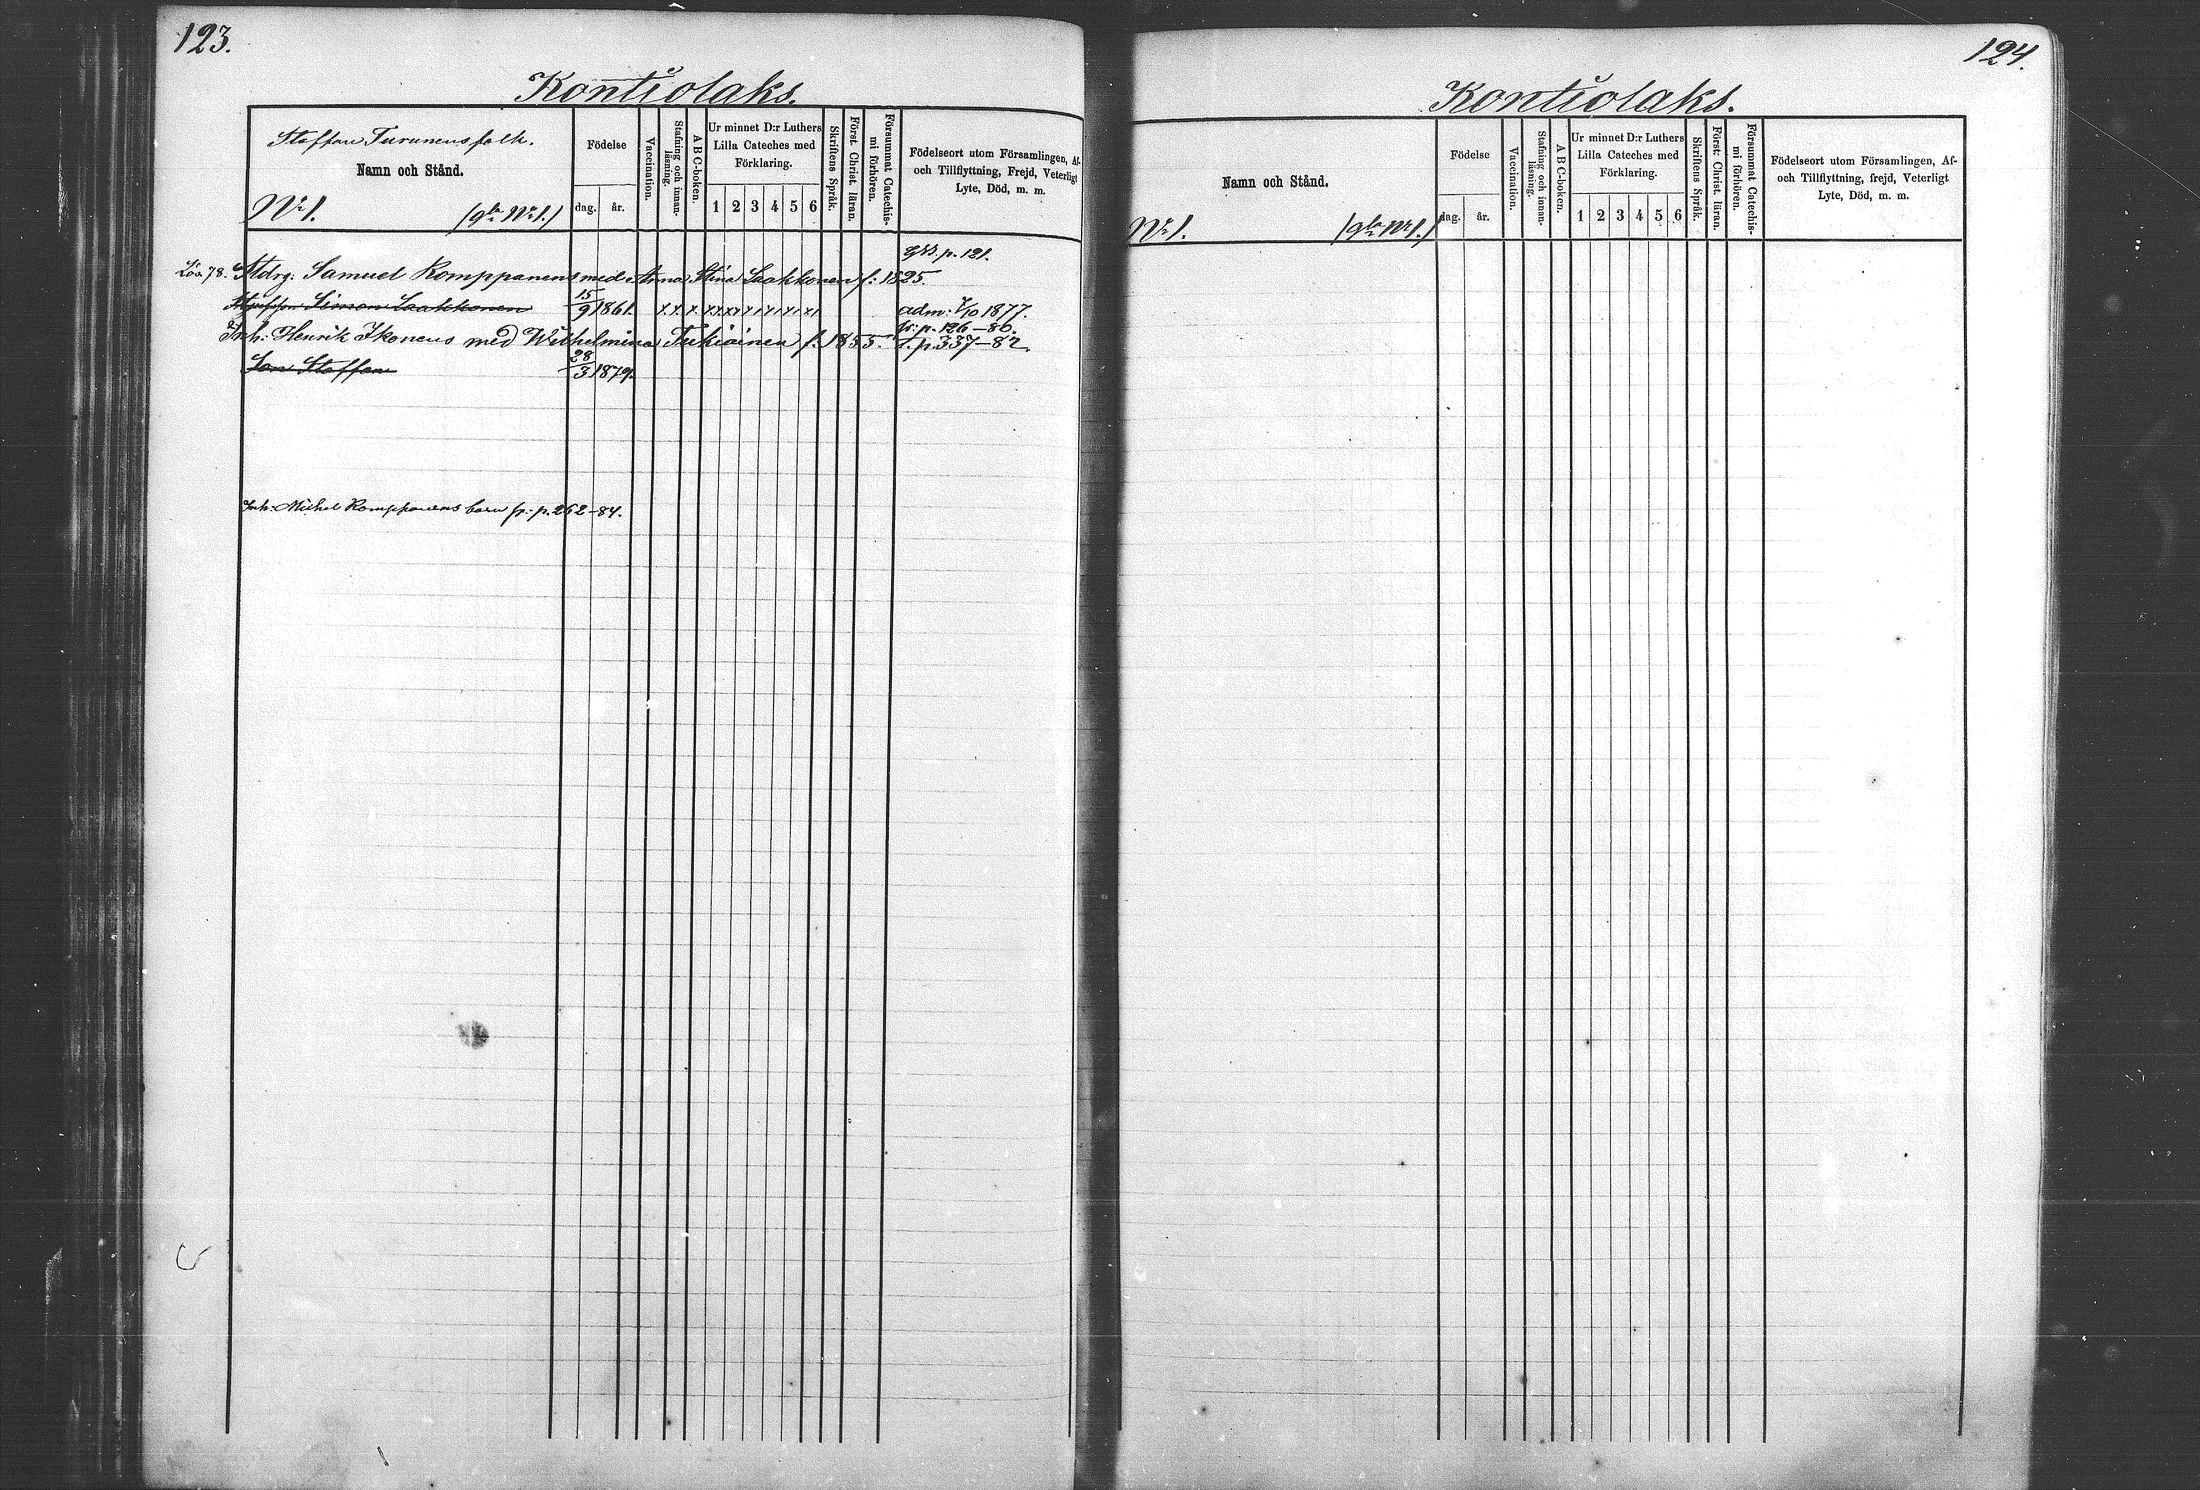 123.
Kontiolaks.
Staffan Turunens folk.
Namn och Stånd.
N:r 1.
(gla N:r 1.)
Födelse
dag.
år.
Vaccination.
Stafning och innan-
läsning.
A B C-boken.
Ur minnet D:r Luthers
Lilla Cateches med
Förklaring.
1 2 3 4 5 6
Skriftens Språk.
Först. Christ. läran.
Försummat Catechis-
mi förhören.
Födelseort utom Församlingen, Af-
och Tillflyttning, Frejd, Veterligt
Lyte, Död, m. m.
p. 121.
78. Mdrg. Samuel Romppanens med Anna Stina Laakkonen f: 1825.
Styfson Simon Laakkonen 15/9 1861. x x x x x x x x x adm: 7/10 1877.
fr: p. 126-86.
Inh: Henrik Ikonens med Wilhelmina Tukiainen f. 1855. t. p. 337-82.
Son Staffan 28/3 1879.
Inh: Michel Romppanens barn fr: p. 262-84.
124.
Kontiolaks.
Namn och Stånd.
N:r 1.
(gla N:r 1.)
Födelse
dag.
år.
Vaccination.
Stafning och innan-
läsning.
A B C-boken.
Ur minnet D:r Luthers
Lilla Cateches med
Förklaring.
1 2 3 4 5 6
Skriftens Språk.
Först. Christ. läran.
Försummat Catechis-
mi förhören.
Födelseort utom Församlingen, Af-
och Tillflyttning, frejd, Veterligt
Lyte, Död, m. m.